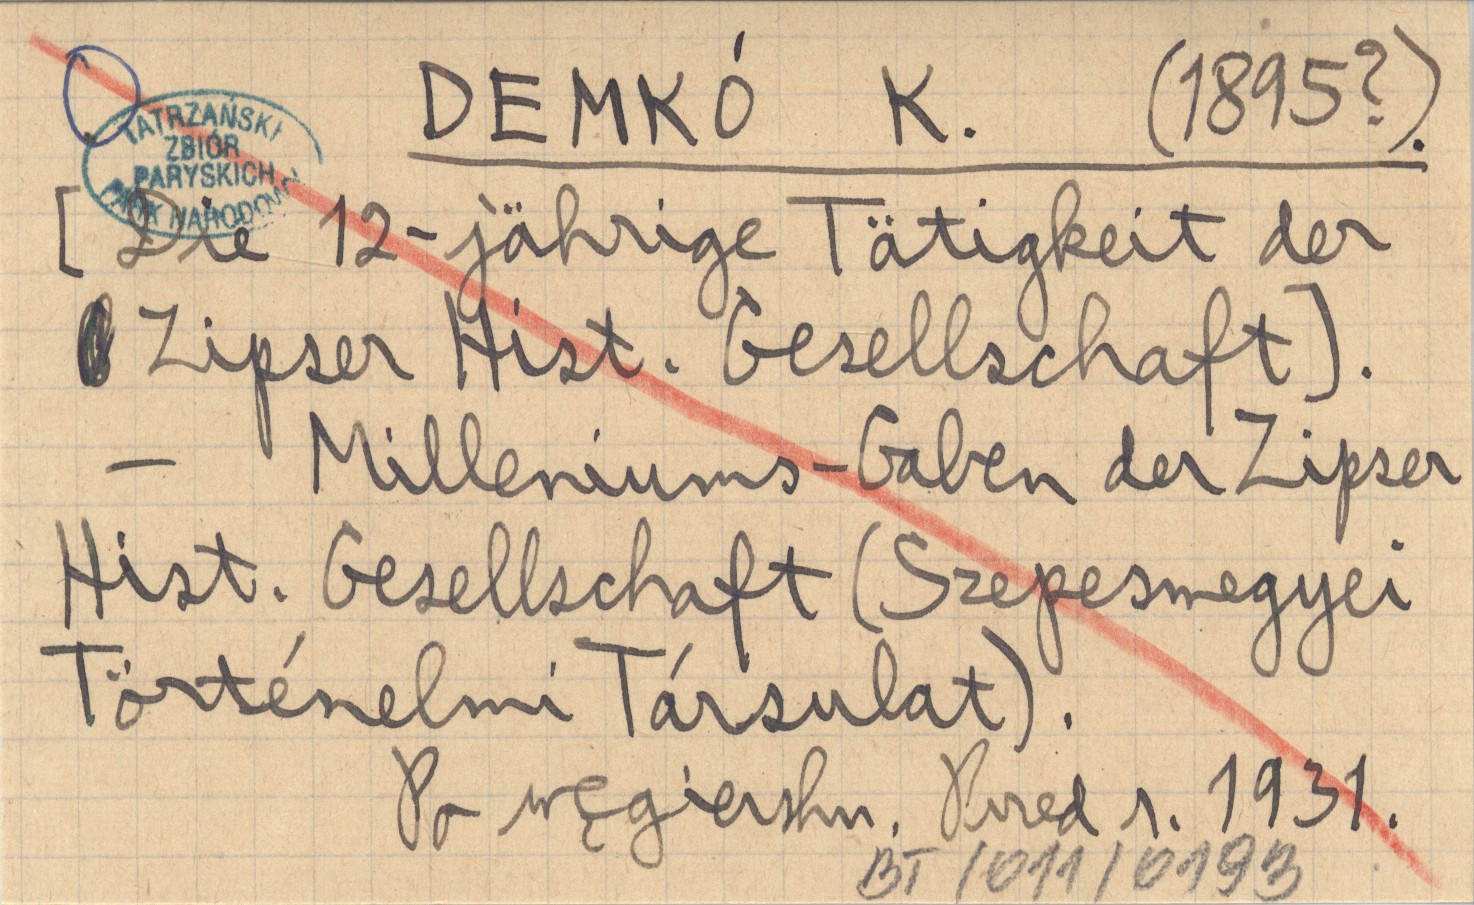 DEMKÓ K. (1895?).
TATRZAŃSKI
ZBIÓR
PARYSKICH
PARK NARODOWY
[Die 12-jährige Tätigkeit der
Zipser Hist. Gesellschaft].
— Milleniums-Gaben der Zipser
Hist. Gesellschaft (Szepesmegyei
Történelmi Társulat).
Po węgiersku. Przed r. 1931.
BT/011/0193